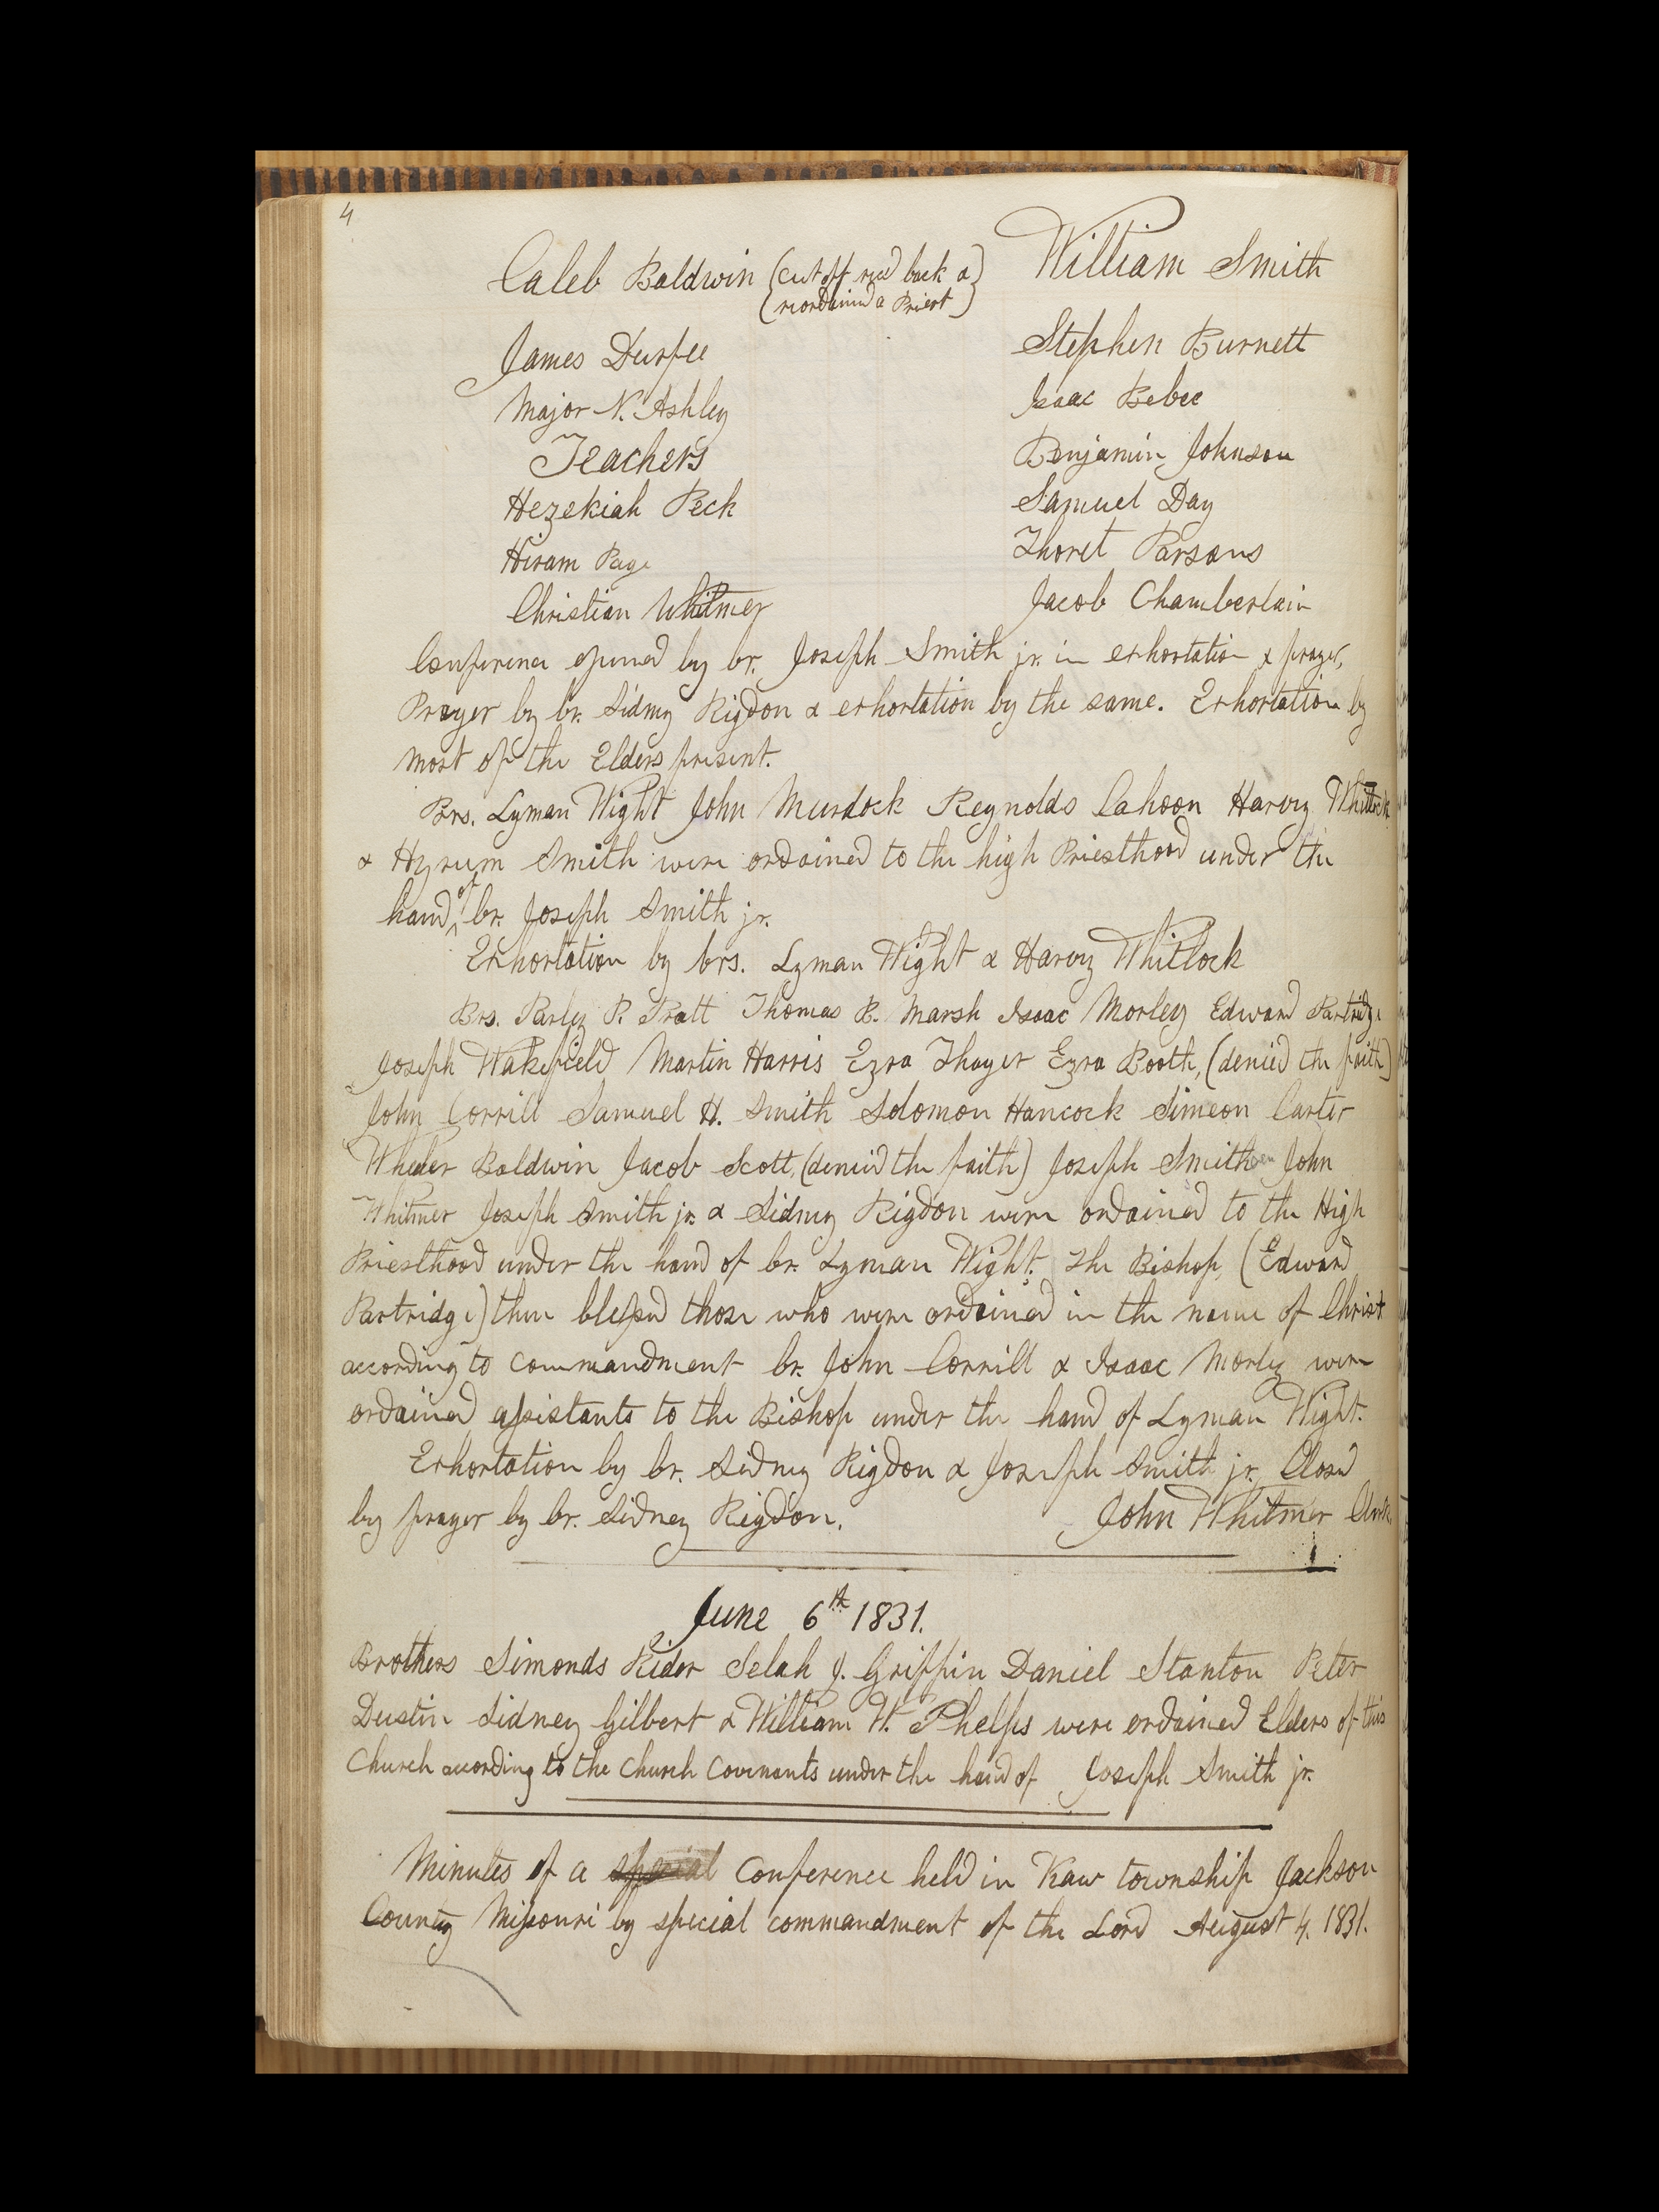 4
Caleb Baldwin (cut off recd back & William Smith
(reordained a Priest)
James Durfee Stephen Burnett
Major N. Ashley Isaac Bebee
Teachers Benjamin Johnson
Hezekiah Peck Samuel Day
Hiram Page Thoret Parsons
Christian Whitmer Jacob Chamberlain
Conference opened by br. Joseph Smith jr. in exhortation & prayer,
Prayer by br. Sidney Rigdon & exhortation by the same. Exhortation by
most of the Elders present.
Brs. Lyman Wight John Murdock Reynolds Cahoon Harvey Whitlock
& Hyrum Smith were ordained to the high Priesthood under the
hand of br. Joseph Smith jr.
Exhortation by brs. Lyman Wight & Harvey Whitlock
Brs. Parley P. Pratt Thomas B. Marsh Isaac Morley Edward Partridge
Joseph Wakefield Martin Harris Ezra Thayer Ezra Booth, (denied the faith)
John Corrill Samuel H. Smith Solomon Hancock Simeon Carter
Wheeler Baldwin Jacob Scott, (denied the faith) Joseph Smith sen John
Whitmer Joseph Smith jr. & Sidney Rigdon were ordained to the High
Priesthood under the hand of br. Lyman Wight. The Bishop, (Edward
Partridge) then blessed those who were ordained in the name of Christ
according to commandment br. John Corrill & Isaac Morley were
ordained assistants to the Bishop under the hand of Lyman Wight.
Exhortation by br. Sidney Rigdon & Joseph Smith jr. Closed
by prayer by br. Sidney Rigdon. John Whitmer Clerk
June 6th 1831.
Brothers Simonds Rider Selah J. Griffin Daniel Stanton Peter
Dustin Sidney Gilbert & William W. Phelps were ordained Elders of this
Church according to the Church Covenants under the hand of Joseph Smith jr.
Minutes of a special Conference held in Kaw township Jackson
County Missouri by special commandment of the Lord August 4. 1831.